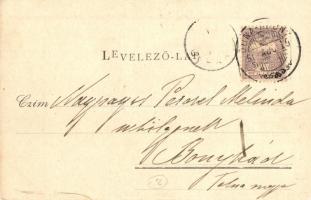 LEVELEZŐ-LAP
Czim Nagyságos Perczel Melinda
úrhölgynek
Bonyhád
Tolna megye